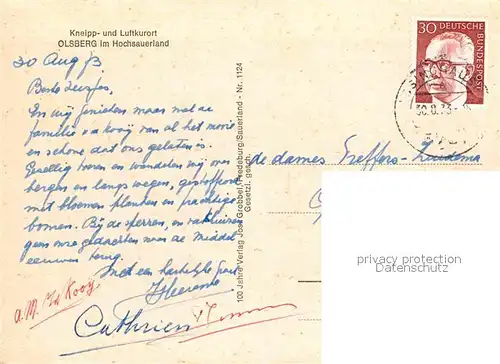 Kneipp- und Luftkurort
OLSBERG im Hochsauerland
30 Aug 73
Beste Zusjes,
En wij genieten maar met de
familie v.a Kooij van al het mooie
en schone dat ons gelaten is.
Gezellig toeren en wandelen wij over
bergen en langs wegen, gestoffeerd
met bloemen planten en prachtige
bomen. Bij de sperren, en
gaan onze gedachten naar de Middel
eeuwen terug.
Met een hartelijke groet
Heerema
A.M. Kooy
Cathrien
100 Jahre Verlag Josef Grobbel, Fredeburg/Sauerland - Nr. 1124
Gesetzl. gesch.
30 DEUTSCHE BUNDESPOST
30.8.73
de dames
privacy protection
Datenschutz